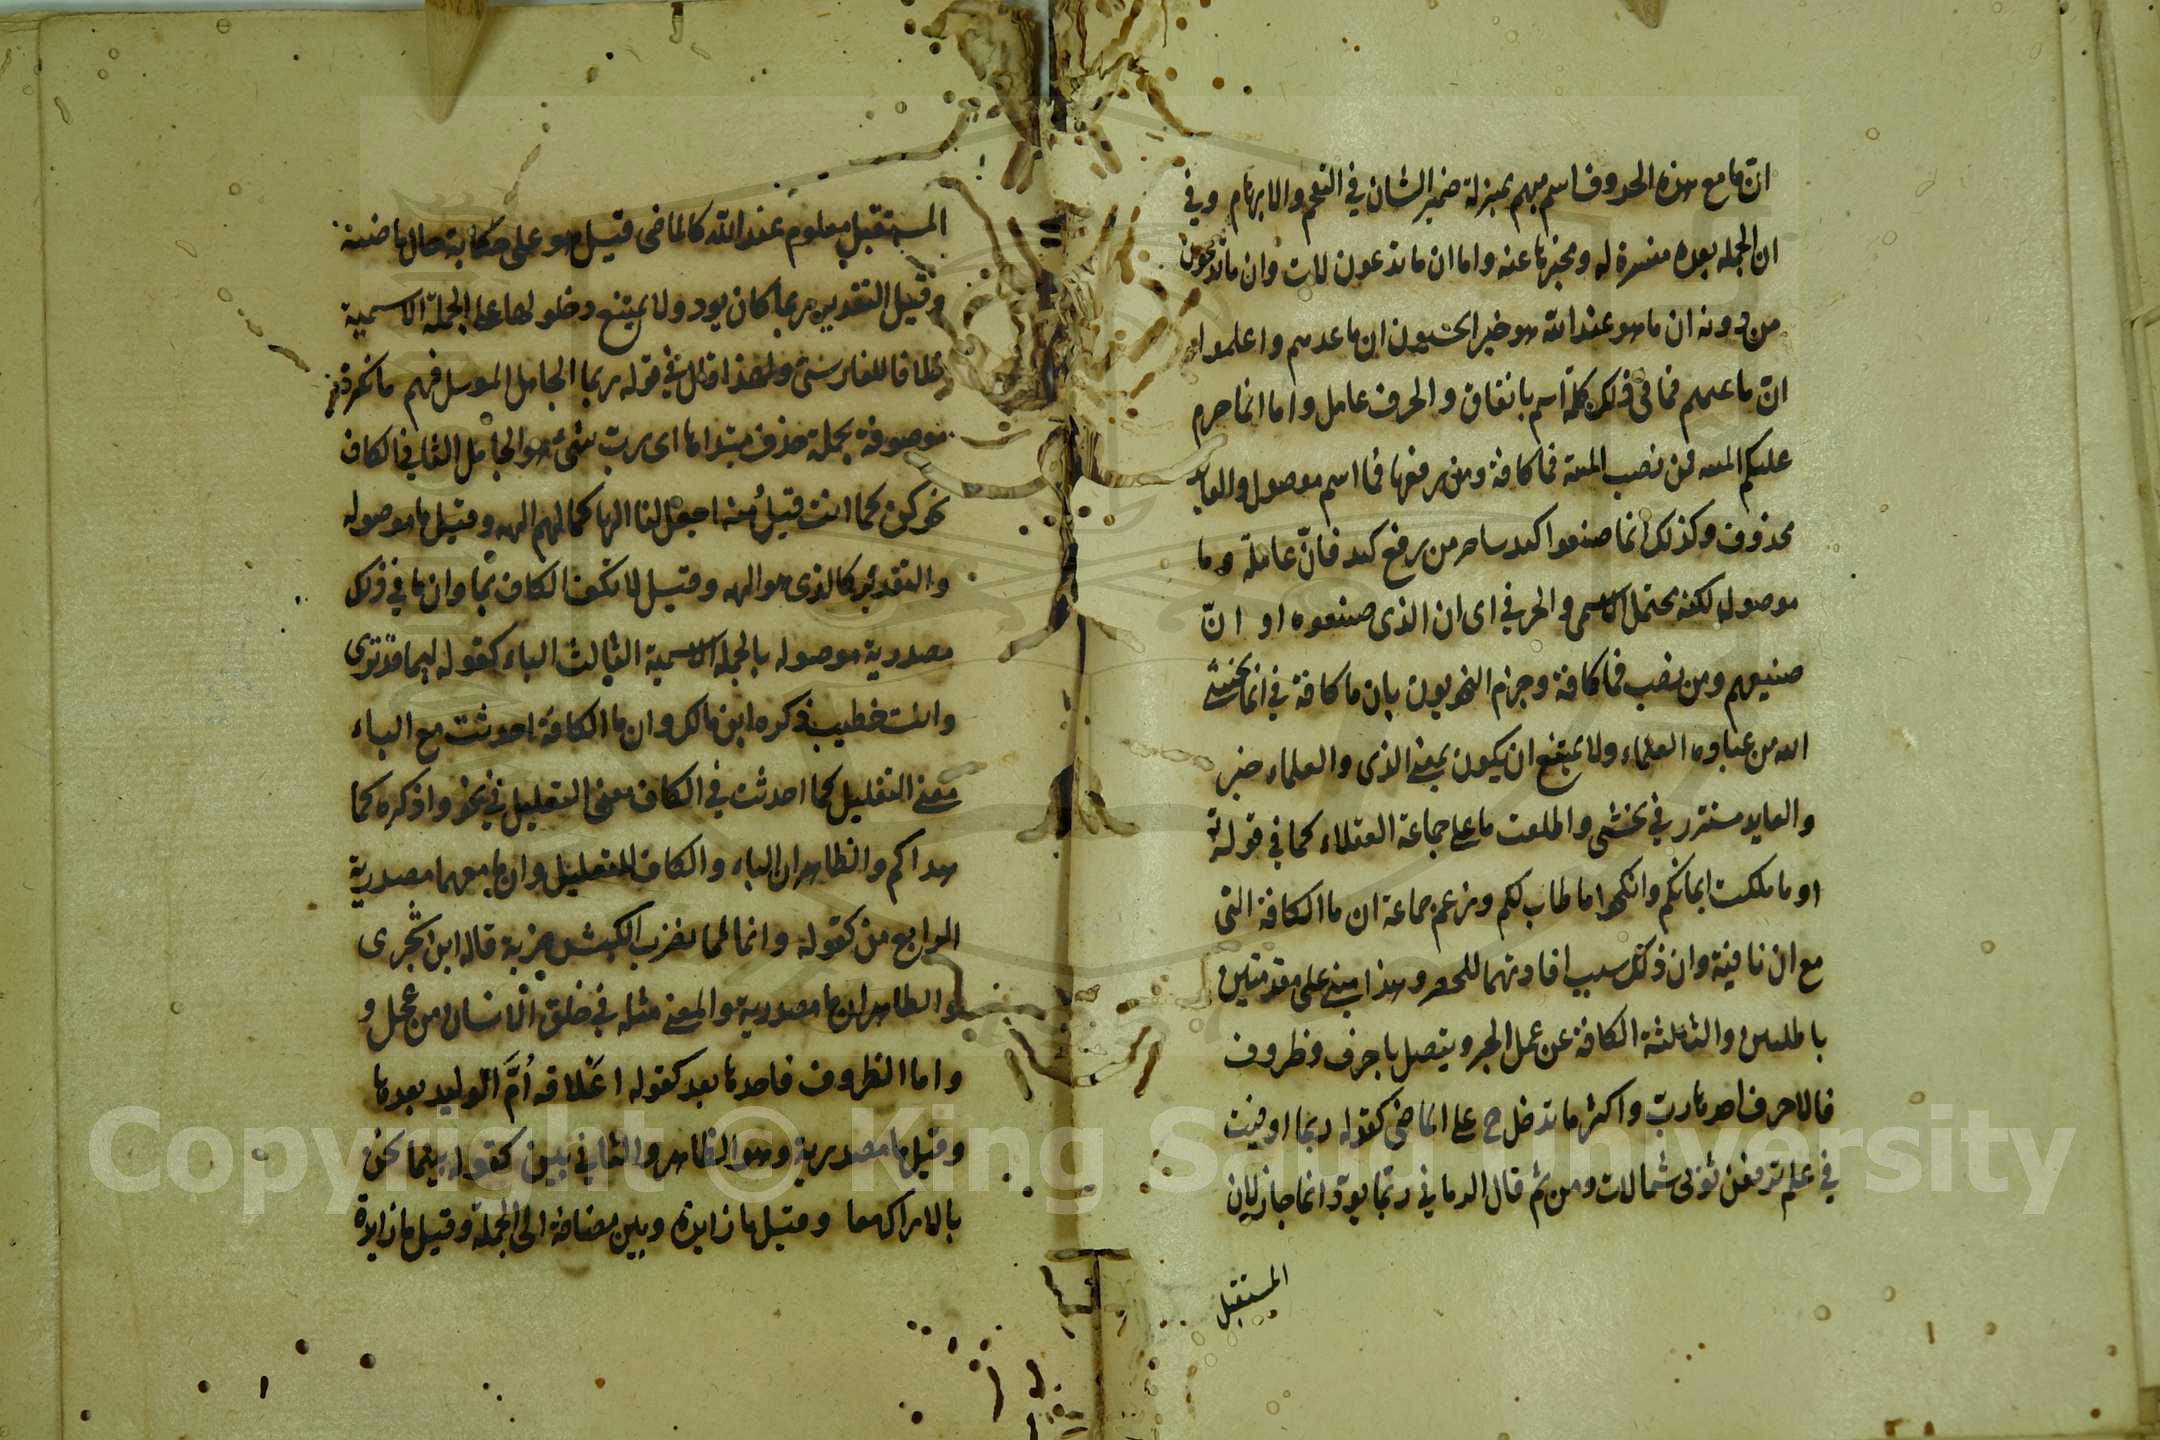 ان ما مع هذه الحروف اسم مبهم بمنزلة ضمير الشان في التفخيم والابهام وفي
ان الجمله بعده مفسرة له ومخبر بها عنه واما ان ما تدعون لات وان ما تدعون
من دونه ان ما هو عند الله هو خير ايحسبون ان ما عدهم واعلموا
ان ما غنمتم فما في ذلك كله اسم باتفاق والحرف عامل واما انما حرم
عليكم الميته فمن نصب الميتة فما كافة ومن رفعها فما اسم موصول والعايد
محذوف وكذلك انما صنعوا كيد ساحر من رفع كيد فان عاملة وما
موصوله لكنه محتمل الاسمي والحرفي اى ان الذى صنعوه او ان
صنيعهم ومن نصب فما كافة وجزم النحويون بان ما كافة في انما يخشى
الله من عباده العلماء ولا يمتنع ان يكون بمعنى الذى والعلماء خبر
والعايد مستتر في يخشى واطلقت ما على جماعة العقلاء كما في قوله تع
او ما ملكت ايمانكم وانكحوا ما طاب لكم وزعم جماعة ان ما الكافة التى
مع ان نافية وان ذلك سبب افادتهما للحصر وهذا مبنى على مقدمتين
باطلتين والثالثة الكافة عن عمل الجر ويتصل باحرف وظروف
فالاحرف احدها رب واكثر ما تدخل ح على الماضى كقوله ربما اوفيت
في علم ترفعن ثوبى شمالات ومن ثم قال الرماني ربما يود انما جاز لان
المستقبل
المستقبل معلوم عند الله كالماضى قيل هو على حكاية حال ماضية
وقيل التقدير ربما كان يود ولا يمتنع دخولها على الجملة الاسمية
خلافا للفارسى ولهذا قال في قوله ربما الجامل الموبل فيهم ما نكرة
موصوفة بجملة حذف مبتداها اى رب شئ هو الجامل الثاني الكاف
نحو كن كما انت قيل منه اجعل لنا الها كما لهم الهه وقيل ما موصوله
والتقدير كالذى هو الهه وقيل لا تكف الكاف بما وان ما في ذلك
مصدرية موصوله بالجمله الاسمية الثالث الباء كقوله لبما قد ترى
وانت خطيب ذكره ابن مالك وان ما الكافة احدثت مع الباء
معنى التقليل كما احدثت في الكاف معنى التعليل في نحو واذكره كما
هداكم والظاهر ان الباء والكاف للتعليل وان ما معهما مصدرية
الرابع من كقوله وانا لمما نضرب الكبش ضربة قاله ابن الشجرى
والظاهر ان ما مصدرية والمعنى مثله في خلق الانسان من عجل و
واما الظروف فاحدها بعد كقوله اعلاقه أم الوليد بعدما
وقيل ما مصدرية وهو الظاهر والثاني بين كقوله بينما نحن
بالاراك معا وقيل ما زايدة وبين مضافة الى الجملة وقيل ما زايدة